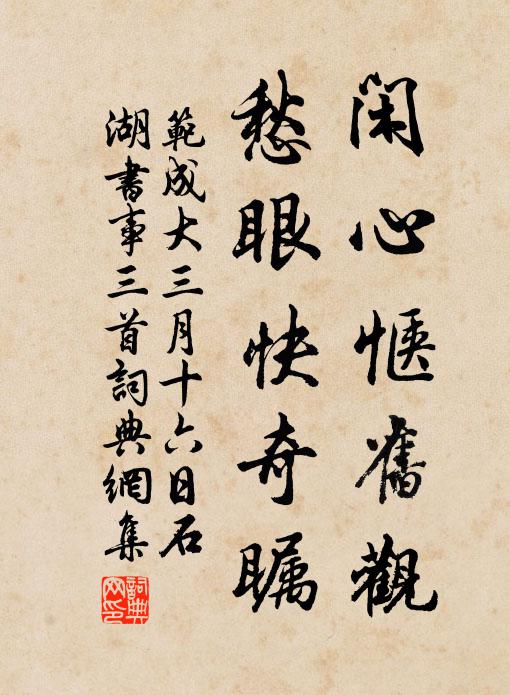 闲心惬舊觀
愁眼快奇瞩
範成大三月十六日石
湖書事三首詞典網集
詞典
网印